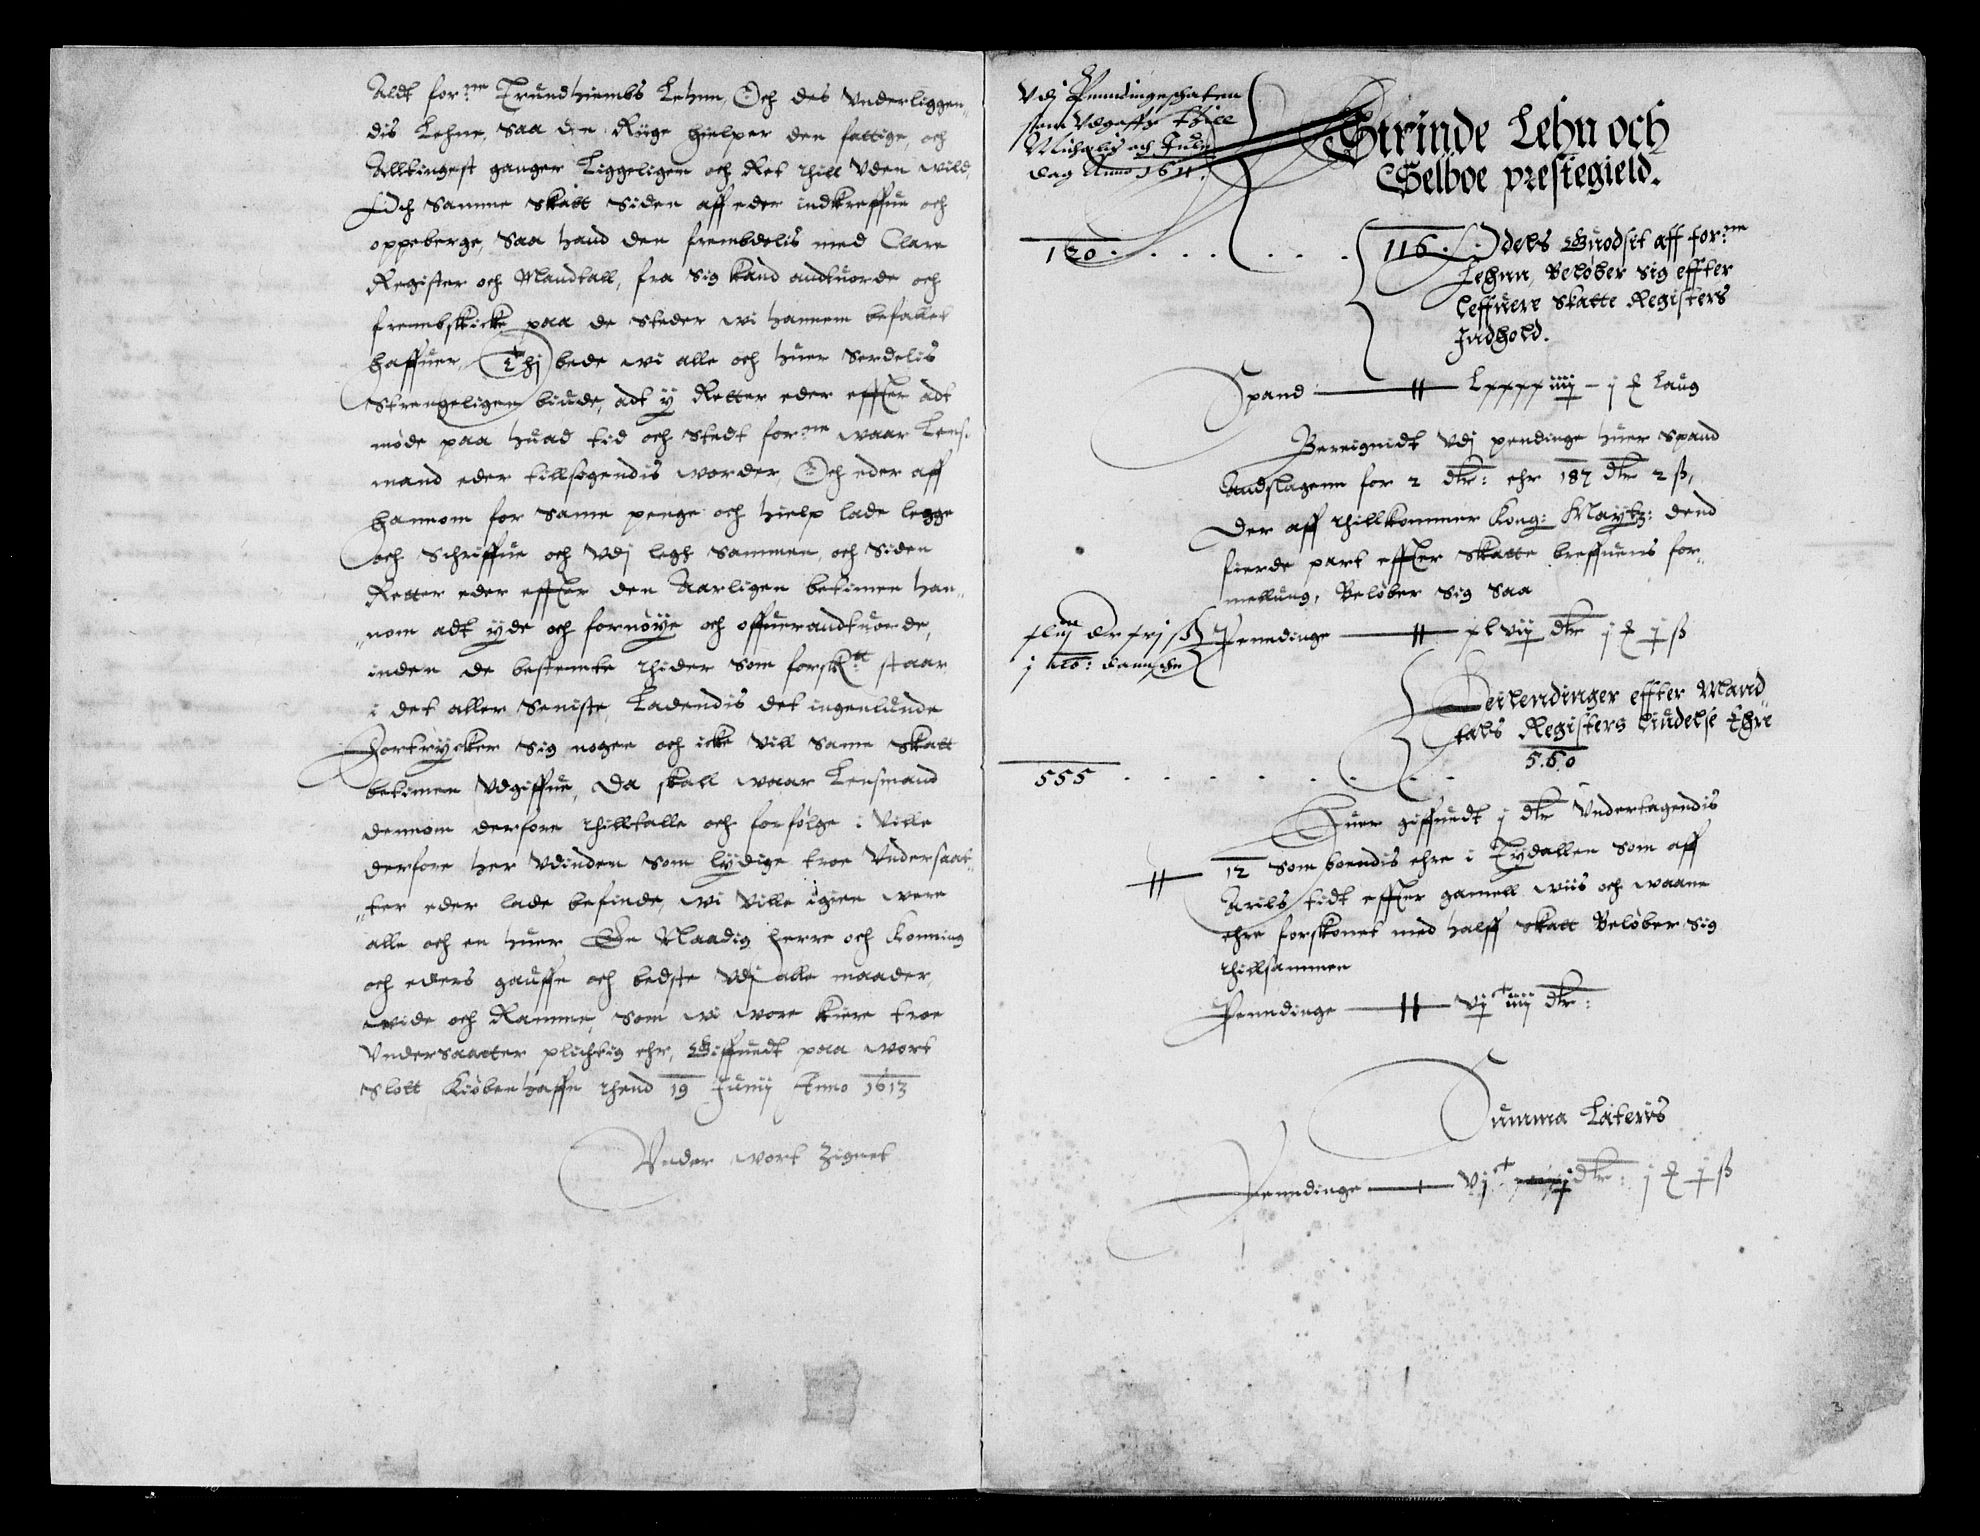 Aldt for:ne Trundhiembs Lehnn, Och des Vnderliggen„
dis Lehne, Saa den Riige hielper den fattige, och
Alltingest ganger Liggeligen och Ret thill Vden wild,
Och Samme Skatt Siden aff eder indkreffue och
oppeberge, Saa hand den frembdelis med Clare
Register och Mandtall, fra Sig kand andtuorde och
frembskicke paa de Steder wi hannem befallet
haffuer, Thj bede wi alle och huer Serdelis
Strengeligen biude, adt y Retter eder effter adt
møde paa huad tid och Stedt for:ne waar Lens„
mand eder tillsigendis worder, Och eder aff
hannom for Same penge och hielp lade legge
och Schriffue och Vdj legh Sammen och Siden
Retter eder effter den Aarligen betimen han„
„nom adt yde och fornøye och offuerandtuorde,
inden de bestemte thider Som forsk:tt staar
i det aller Seniste, Ladendis det ingenlunde
Fortrycker Sig nogen och icke Vill Same Skatt
betimen Vdgiffue, Da skall waar Lensmand
dennom derfore thilltalle och forfølge i Ville
derfore her Vdinden Som lydige troe Vndersaat„
„ter eder lade befinde, wi Ville igien were
alle och en huer En Naadig herre och Konning
och eders gauffn och bedste Vdj alle maader,
wide och Ramme, Som wi wore kiere troe
Vndersaatter plichtig ehr, Giffuedt paa wort
Slott Kiøbenhaffn thend 19 Junij Anno 1613
Vnder wort Zignet
Vdj Penndingeschatten
som Vdgaffs thill
Michaelis och Juele
dag Anno 1611.
Strinde Lehn och
Selboe prestegield.
120 . . . . . . . 116. Odels Guodset aff for:ne
Lehnn, Beløber Sig effter
Leffuere Skatte Registers
Indhold.
Spand — Lxxxxiiij – j ₰ laug
Bereignidt Vdj pendinge huer Spand
Andslagenn for 2 dtr: ehr 187 dtr 2 ß,
Der aff thillkommer Kong: Maytz: dend
fierde part effter Skatte breffuens for„
melding, Beløber Sig Saa
Penndinge — xlvij dtr j ₰ j ß
j alb: danske
Leilendinger effter Mand„
tals Registers Liudelse Ehre
560
555 . . . . . . . .
Huer giffuedt j dtr Vndertagendis
12 Som boendis ehre i Tydallen Som aff
Arils tidt effter gamell wiis och waane
ehre forskonet med halff Skatt Beløber Sig
thillsammen
Penndinge — Vc iiij dtr:
Summa Lateris
Penndinge — Vjc dtr: j ₰ j ß
3